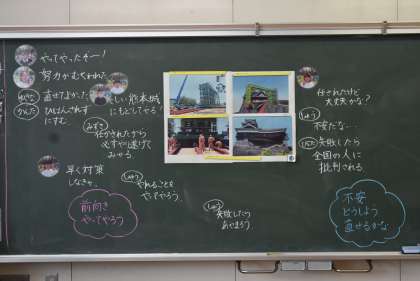 やってやったぞー！
努力がむくわれた
直せてよかった
ひはんされず
にすむ
美しい熊本城
にもどしてやる！
みずき
任かされたから
必ずやり遂げて
みせる
早く対策
しなきゃ。
しゅう
やれることを
やってやろう。
前向き
やってやろう
しゅう
失敗したら
あやまろう
任されたけど
大丈夫かな？
しゅう
不安だな…
失敗したら
全国の人に
批判される。
不安
どうしよう
直せるかな